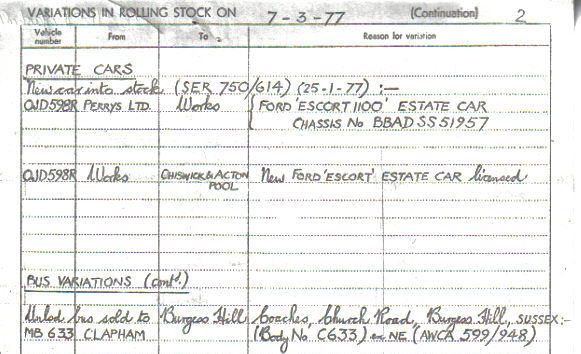 VARIATIONS IN ROLLING STOCK ON 7-3-77 (Continuation) 2
Vehicle number From To Reason for variation
PRIVATE CARS
New car into stock (SER 750/614) (25-1-77) :—
OJD598R PERRYS LTD. Works { FORD 'ESCORT 1100' ESTATE CAR
CHASSIS No BBAD SS 51957
OJD598R Works CHISWICK & ACTON POOL New FORD 'ESCORT' ESTATE CAR licensed
BUS VARIATIONS (contd.)
bus sold to Burgess Hill Coaches, Church Road, Burgess Hill, SUSSEX:-
MB 633 CLAPHAM (Body No C633) ex NE (AWCA 599/948).